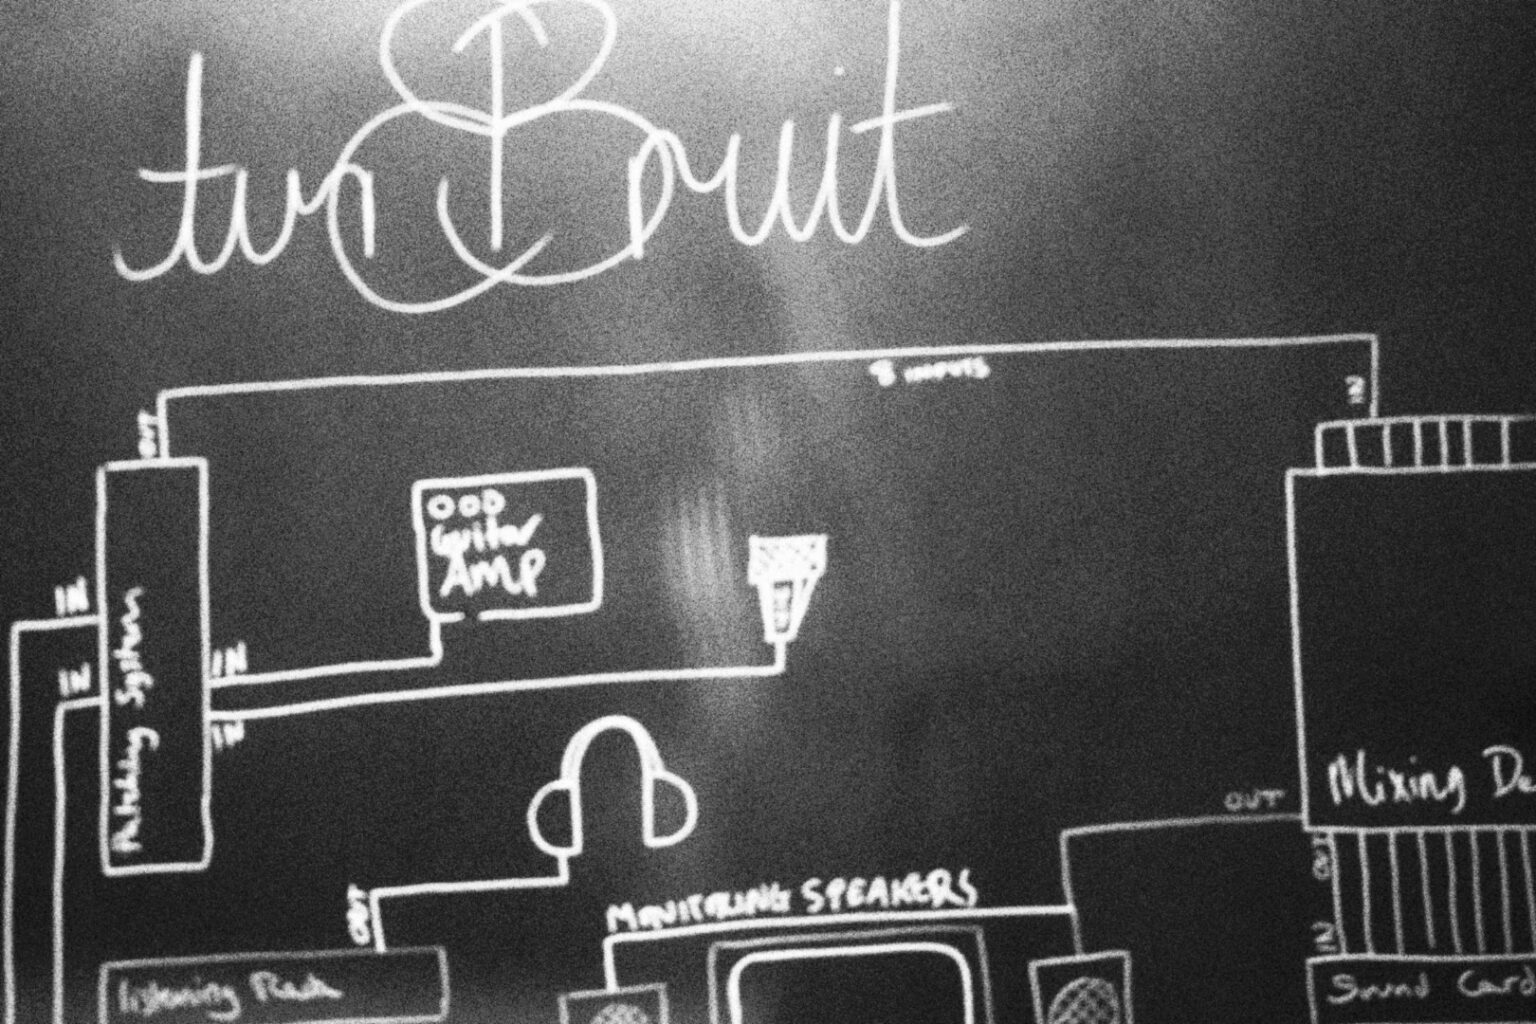 OUT
8 INPUTS
IN
Guitar
AMP
IN
IN
Patching System
IN
IN
OUT
Mixing De
OUT
OUT
MONITORING SPEAKERS
IN
listening Rack
Sound Card